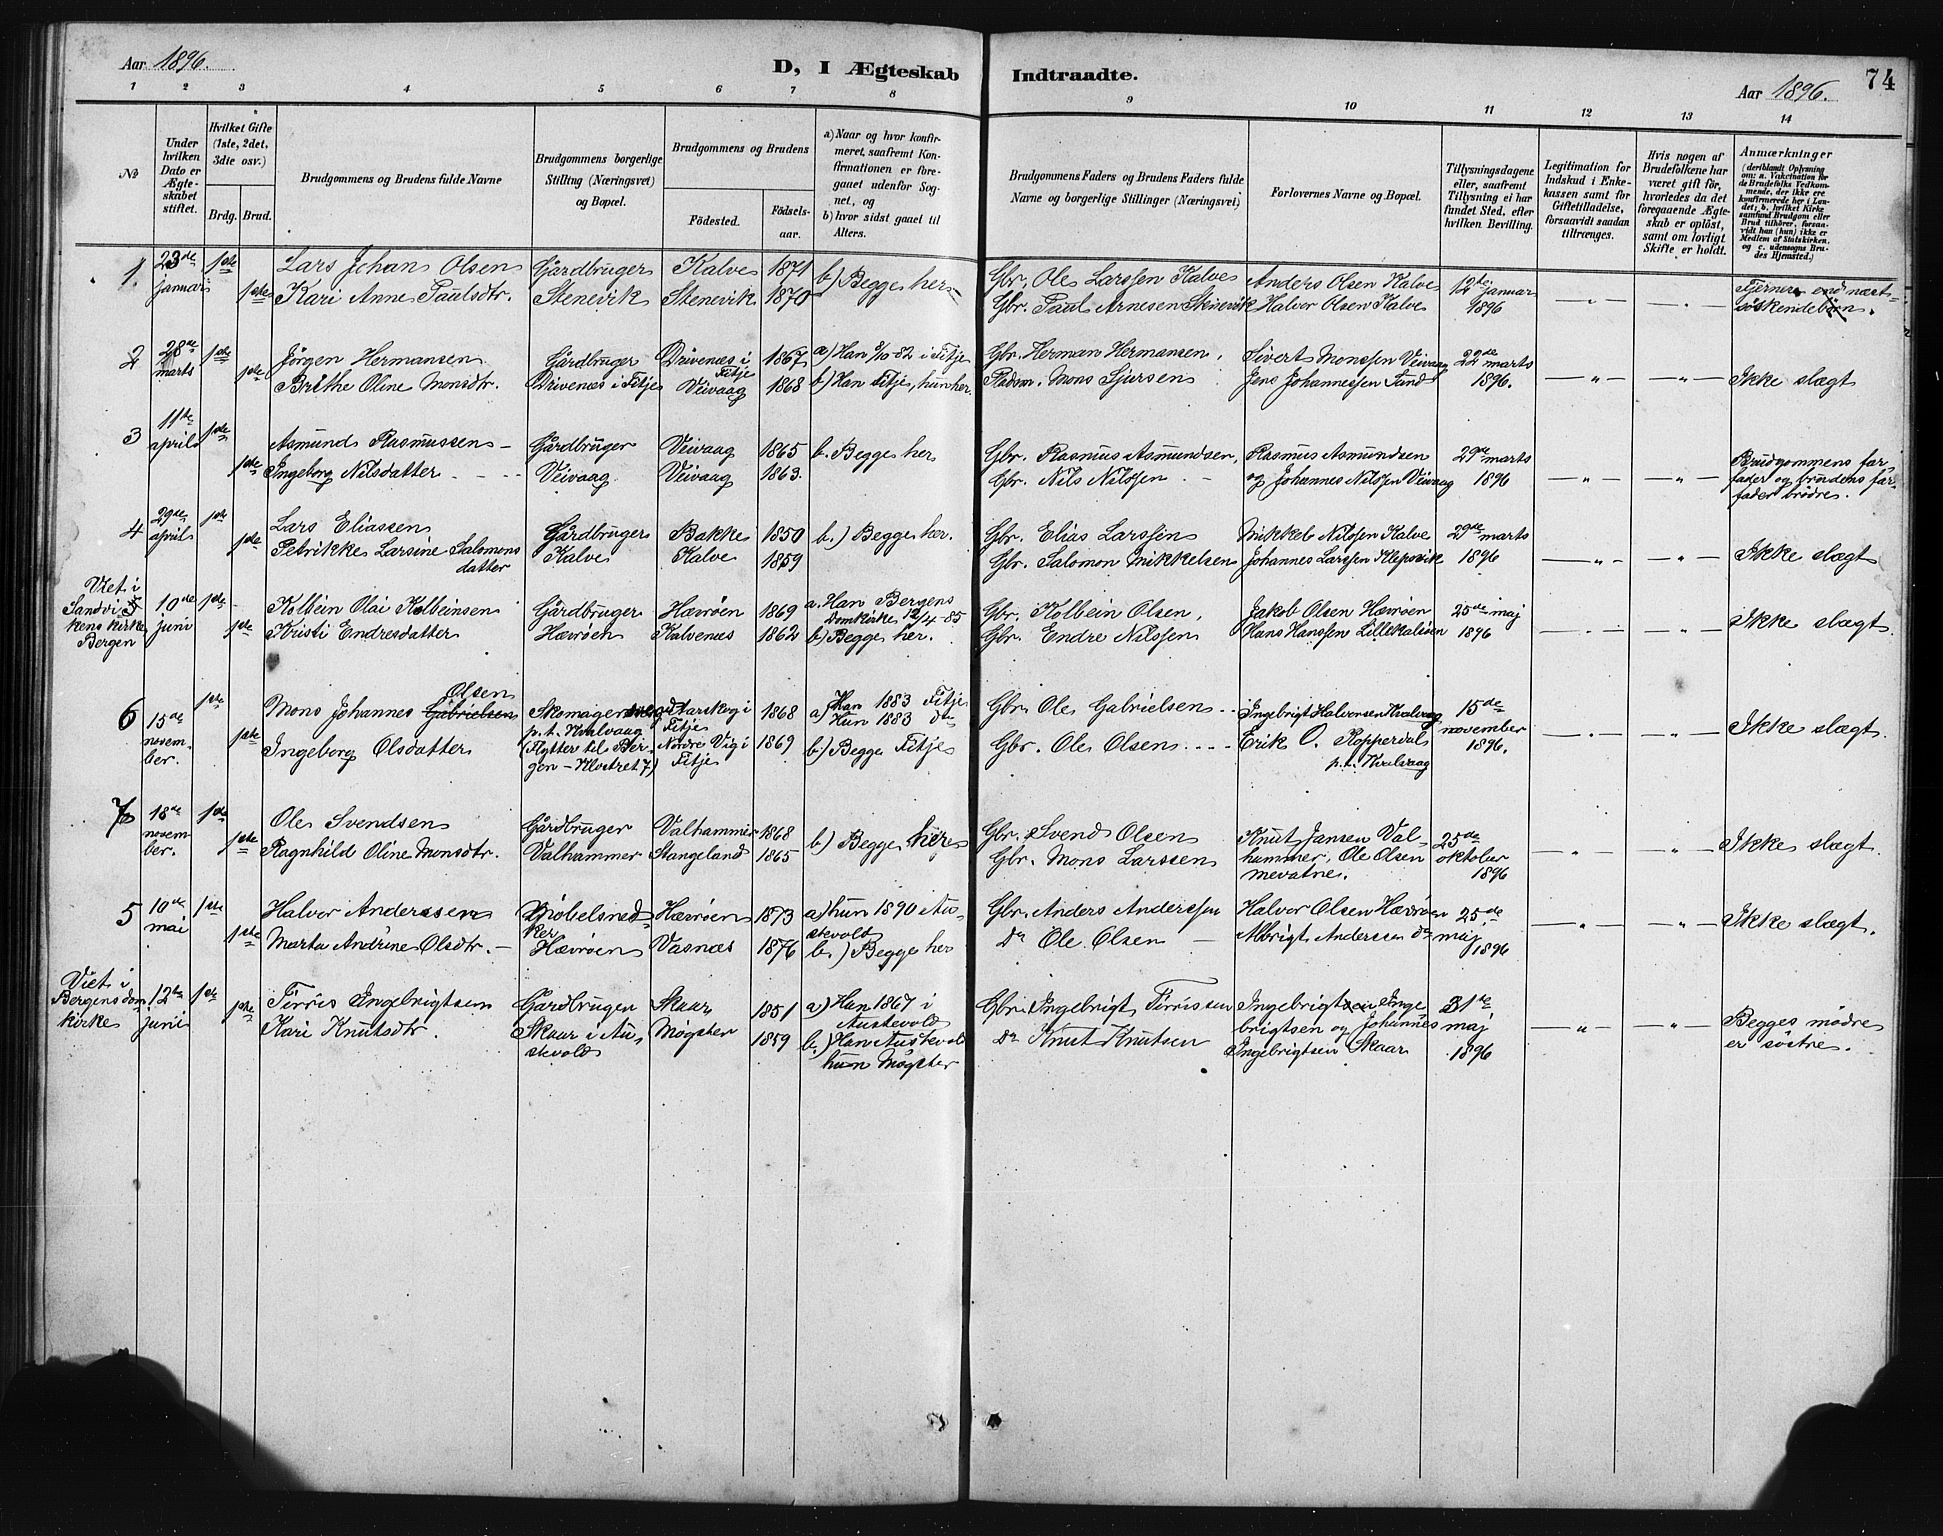 Aar 1896.
D, I Ægteskab Indtraadte.
Aar 1896.
74
1 2 3 4 5 6 7 8 9 10 11 12 13 14
No
Under hvilken Dato er Ægteskabet stiftet.
Hvilket Gifte (1ste, 2det, 3die osv.)
Brdg. Brud.
Brudgommens og Brudens fulde Navne
Brudgommens borgerlige Stilling (Næringsvei) og Bopæl.
Brudgommens og Brudens
Fødested.
Fødselsaar.
a) Naar og hvor konfirmeret, saafremt Konfirmationen er foregaaet udenfor Sognet, og
b) hvor sidst gaaet til Alters.
Brudgommens Faders og Brudens Faders fulde Navne og borgerlige Stillinger (Næringsvei)
Forlovernes Navne og Bopæl.
Tillysningsdagene eller, saafremt Tillysning ei har fundet Sted, efter hvilken Bevilling.
Legitimation for Indskud i Enkekassen samt for Giftetilladelse, forsaavidt saadan tiltrænges.
Hvis nogen af Brudefolkene har været gift før, hvorledes da det foregaaende Ægteskab er opløst, samt om lovligt Skifte er holdt.
Anmærkninger
(deriblandt Oplysning om: a. Vakcination for de Brudefolks Vedkommende, der ikke ere konfirmerede her i Landet; b. hvilket Kirkesamfund Brudgom eller Brud tilhører, forsaavidt han (hun) ikke er Medlem af Statskirken, og c. udensogns Brudes Hjemsted.)
1. 23de januar 1ste Lars Johan Olsen Gårdbruger Kalve 1871 b.) Begge her Gbr. Ole Larssen Kalve Anders Olsen Kalve 12te januar Fjernere end næst-
1ste Kari Anne Paulsdtr. Stenevik Stenevik 1870 Gbr. Paul Arnesen Stenevik Halvor Olsen Kalve 1896 — " — — " — søskendebørn.
2 28de marts 1ste Jörgen Hermansen Gårdbruger Drivenæs i Fitje 1867 a) Han 8/10 82 i Fitje Gbr. Herman Hermansen, Sivert Monssen Veivaag 22de marts
1ste Brithe Oline Monsdtr. Drivenæs i Fitje Veivaag 1868 b) Han Fitje, hun her. Pladsm. Mons Sjursen Jens Johannessen Sand 1896. — " — — " — Ikke slægt
3 11te april 1ste Asmund Rasmussen Gårdbruger Veivaag 1865 b. Begge her Gbr. Rasmus Asmundsen, Rasmus Asmundsen 29de marts Brudgommens far-
1ste Ingeborg Nilsdatter Veivaag Veivaag 1863. Gbr. Nils Nilssen og Johannes Nilssen Veivaag 1896 — " — — " — fader og brudens far-
fader brødre.
4 29de april 1ste Lars Eliassen Gårdbruger Bakke 1850 b.) Begge her. Gbr. Elias Larssen Mikkel Nilssen Kalve 29de marts
1ste Petrikke Larsine Salomons Kalve Kalve 1859 Gbr. Salomon Mikkelsen Johannes Larssen Klepsvik 1896 — " — — " — Ikke slægt
datter
Viet i Sandvikens kirke Bergen
10de juni 1ste Kolbein Olai Kolbeinsen Gårdbruger Hævrøen 1869 a. Han Bergens Domkirke, 12/4 85 Gbr. Kolbein Olsen, Jakob Olsen Hævrøen 25de maj
1ste Kristi Endresdatter Hævrøen Kalvenes 1862 b) Begge her. Gbr. Endre Nilssen Hans Hanssen Lillekalsøen 1896 — " — — " — Ikke slægt.
6 15de november. 1ste Mons Johannes Gabrielsen Olsen Skomagersvend p.t. Kvalvaag Tarskog i Fitje 1868 a) Han 1883 Fitje Hun 1883 do Gbr. Ole Gabrielsen Ingebrigt Halvorsen Kvalvaag 15de november 1896.
1ste Ingeborg Olsdatter (Flytter til Bergen – Klostret 7) Nordre Vig i Fitje 1869 b.) Begge Fitje Gbr. Ole Olsen Erik O. Ropperdal p.t. Kvalvaag — " — — " — Ikke slægt.
7 18de november. 1ste Ole Svendsen Gårdbruger Valhammer 1868 b) Begge here Gbr. Svend Olsen Knut Jansen Val- 25de
1ste Ragnhild Oline Monsdtr. Valhammer Stangeland 1865 Gbr. Mons Larssen hammer, Ole Olsen oktober — " — — " — Ikke slægt.
mevatne. 1896
5 10de mai 1ste Halvor Anderssen Møbelsnedker Hævrøen 1873 a) hun 1890 Austevold Gbr. Anders Anderssen Halvor Olsen Hævrøen 25de — " — — " — Ikke slægt.
1ste Marta Andrine Olsdtr. Hævrøen Vasnæs 1876 b.) Begge her Do Ole Olsen Albrigt Anderssen do maj 1896
Viet i Bergens domkirke
12te juni 1ste Tirris Ingebrigtsen Gårdbruger Skaar 1851 a) Han 1867 i Austevold Gbr. Ingebrigt Tirrissen Ingebrigt Inge- 31te
1ste Kari Knutsdtr. Skaar i Austevold Møgster 1859 b.) Han Austevold hun Møgster Do Knut Knutsen brigtsen og Johannes maj — " — — " — Begges mødre
Ingebrigtsen Skaar 1896 er søstre.